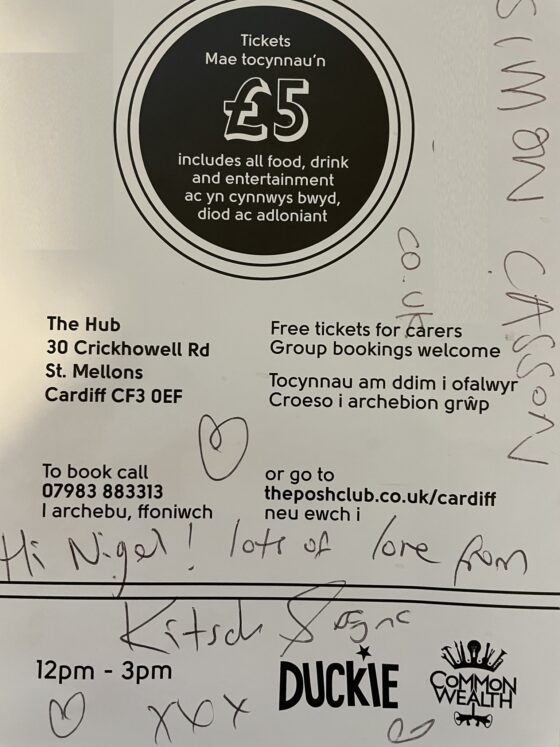 Tickets
Mae tocynnau'n
£5
includes all food, drink
and entertainment
ac yn cynnwys bwyd,
diod ac adloniant
SIMON CASSON
co.uk
The Hub
30 Crickhowell Rd
St. Mellons
Cardiff CF3 0EF
Free tickets for carers
Group bookings welcome
Tocynnau am ddim i ofalwyr
Croeso i archebion grŵp
To book call
07983 883313
I archebu, ffoniwch
or go to
theposhclub.co.uk/cardiff
neu ewch i
Hi Nigel! lots of love from
Kitsch &
12pm - 3pm
xxx
DUCKIE
COMMON
WEALTH